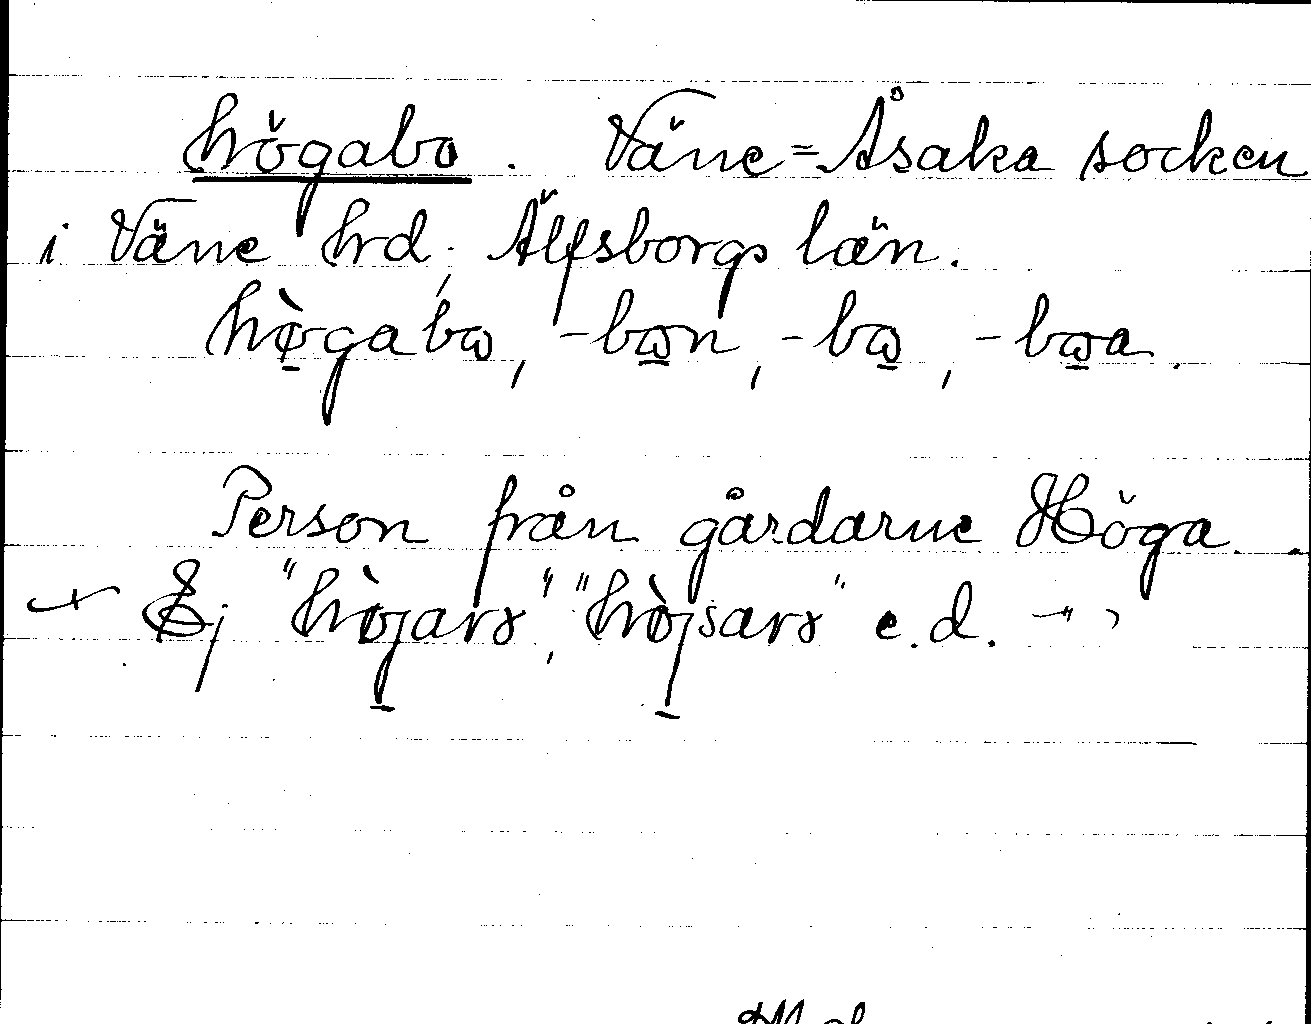 högabo. Väne=Åsaka socken
i Väne hrd, Älfsborgs län.
hø̀gabω, -bω̲n, -bω̲, -bω̲a.
Person från gårdarne Höga.
Ej "hø̀jarɤ", "hø̀jsarɤ" e.d. -"-